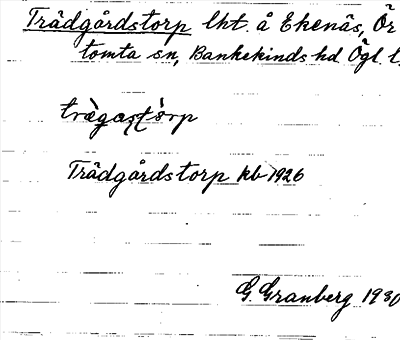 Trädgårdstorp lht. å Ekenäs, Ör
tomta sn, Bankekinds hd Ögl. l.
Trädgårdstorp kb 1926
G. Granberg 1930